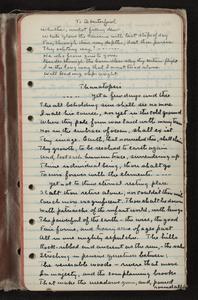 To a Waterfowl
Whither, midst falling dew
While glow the heavens with last steps of day
Far, through their rosy depths, dost thou pursue
Thy solitary way?
He who from zone to zone
Guides through the boundless sky thy certain flight
In the long way that I must tread alone
Will lead my steps aright.
Thanatopsis
Yet a few days and thee
The all beholding sun shall see no more
In all his course, nor yet in the cold ground
Where thy pale form was laid with many tears
Nor in the embrace of ocean, shall exist
Thy image. Earth, that nourished thee, shall claim
Thy growth, to be resolved to earth again
And, lost each human trace, surrendering up
Thine individual being, shalt thou go
To mix forever with the elements.
Yet not to thine eternal resting place
Shalt thou retire alone, nor couldst thou wish
Couch more magnificent. Thou shalt lie down
With patriarchs of the infant world, with kings
The powerful of the earth, the wise, the good
Fair forms, and hoary seers of ages past
All in one mighty sepulchre. The hills
Rock-ribbed and ancient as the sun, the vales
Stretching in pensive quietness between,
The venerable woods - rivers that move
In majesty, and the complaining brooks
That make the meadows green, and, poured
round all